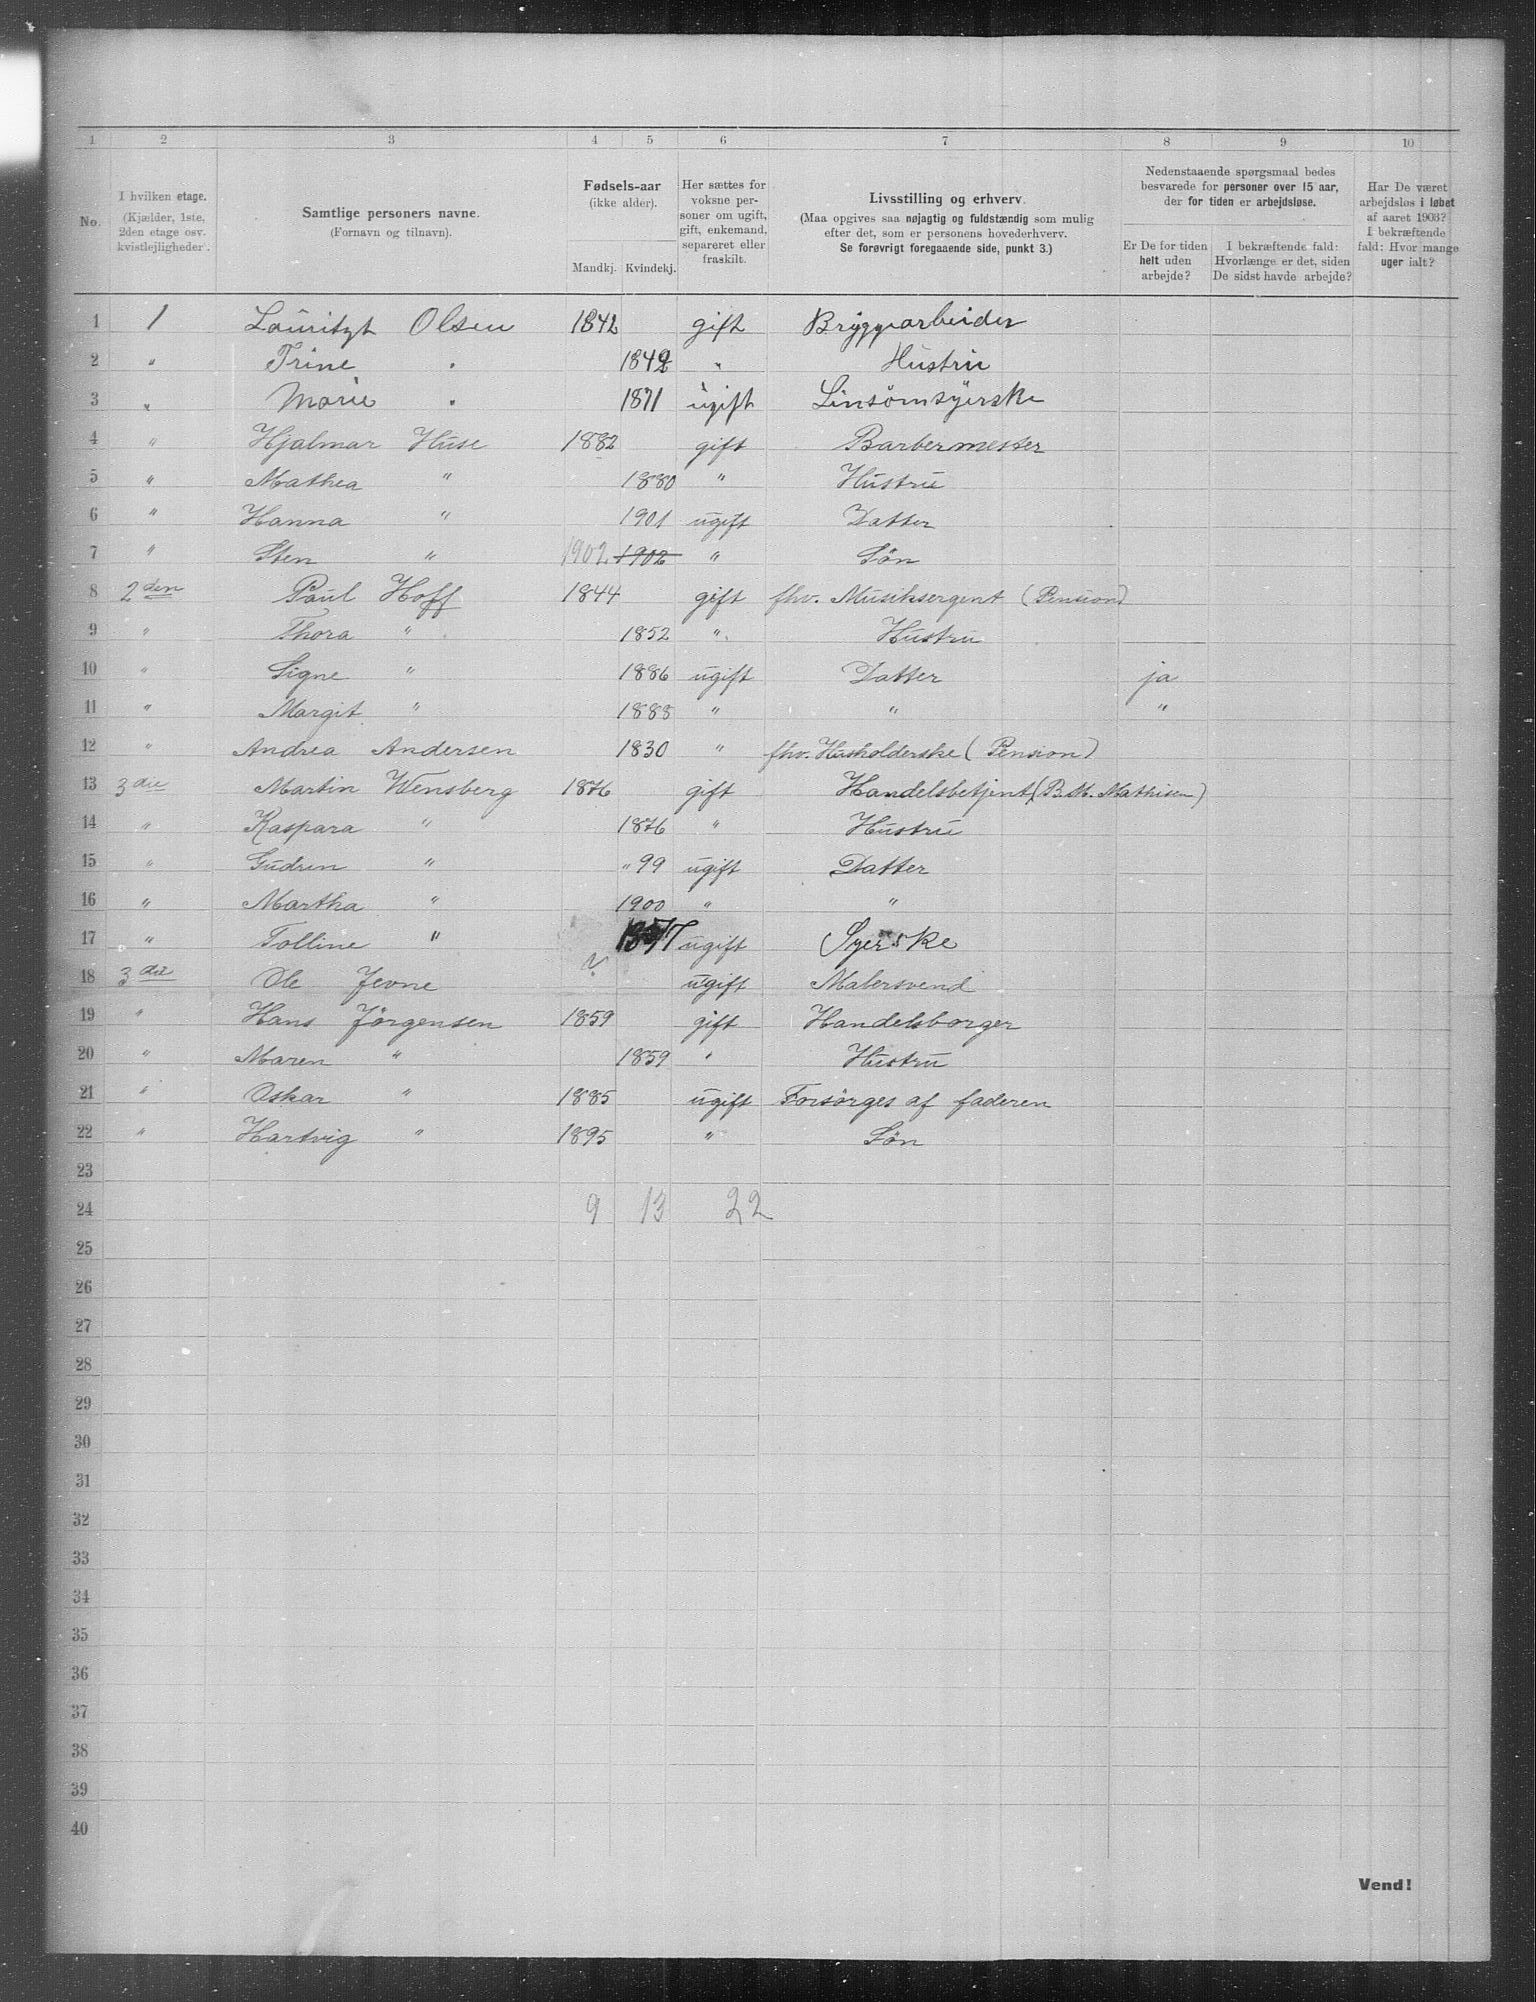 1 2 3 4 5 6 7 8 9 10
No. I hvilken etage. (Kjælder, 1ste, 2den etage osv. kvistlejligheder). Samtlige personers navne. (Fornavn og tilnavn). Fødsels-aar (ikke alder). Mandkj. Kvindekj. Her sættes for voksne personer om ugift, gift, enkemand, separeret eller fraskilt. Livsstilling og erhverv. (Maa opgives saa nøjagtig og fuldstændig som mulig efter det, som er personens hovederhverv. Se forøvrigt foregaaende side, punkt 3.) Nedenstaaende spørgsmaal bedes besvarede for personer over 15 aar, der for tiden er arbejdsløse. Er De for tiden helt uden arbejde? I bekræftende fald: Hvorlænge er det, siden De sidst havde arbejde? Har De været arbejdsløs i løbet af aaret 1903? I bekræftende fald: Hvor mange uger ialt?
1 1 Lauritzt Olsen 1842 gift Bryggearbeider
2 " Trine " 1842 " Hustru
3 " Marie " 1871 ugift Linsömsyerske
4 " Hjalmar Huse 1882 gift Barbermester
5 " Mathea " 1880 " Hustru
6 " Hanna " 1901 ugift Datter
7 " Sten " 1902 1902 " Sön
8 2den Paul Hoff 1844 gift fhv. Musiksergent (Pension)
9 " Thora " 1852 " Hustru
10 " Signe " 1886 ugift Datter ja
11 " Margit " 1888 " " "
12 " Andrea Andersen 1830 " fhv. Husholderske (Pension)
13 3die Martin Wensberg 1876 gift Handelsbetjent (B.M. Mathisen)
14 " Kaspara " 1876 " Hustru
15 " Gudrun " " 99 ugift Datter
16 " Martha " 1900 " "
17 " Tolline " 1877 ugift Syerske
18 3die Ole Jevne ? ugift Malersvend
19 " Hans Jørgensen 1859 gift Handelsborger
20 " Maren " 1859 " Hustru
21 " Oskar " 1885 ugift Forsörges af faderen
22 " Hartvig " 1895 " Sön
23
24 9 13 22
25
26
27
28
29
30
31
32
33
34
35
36
37
38
39
40
Vend!